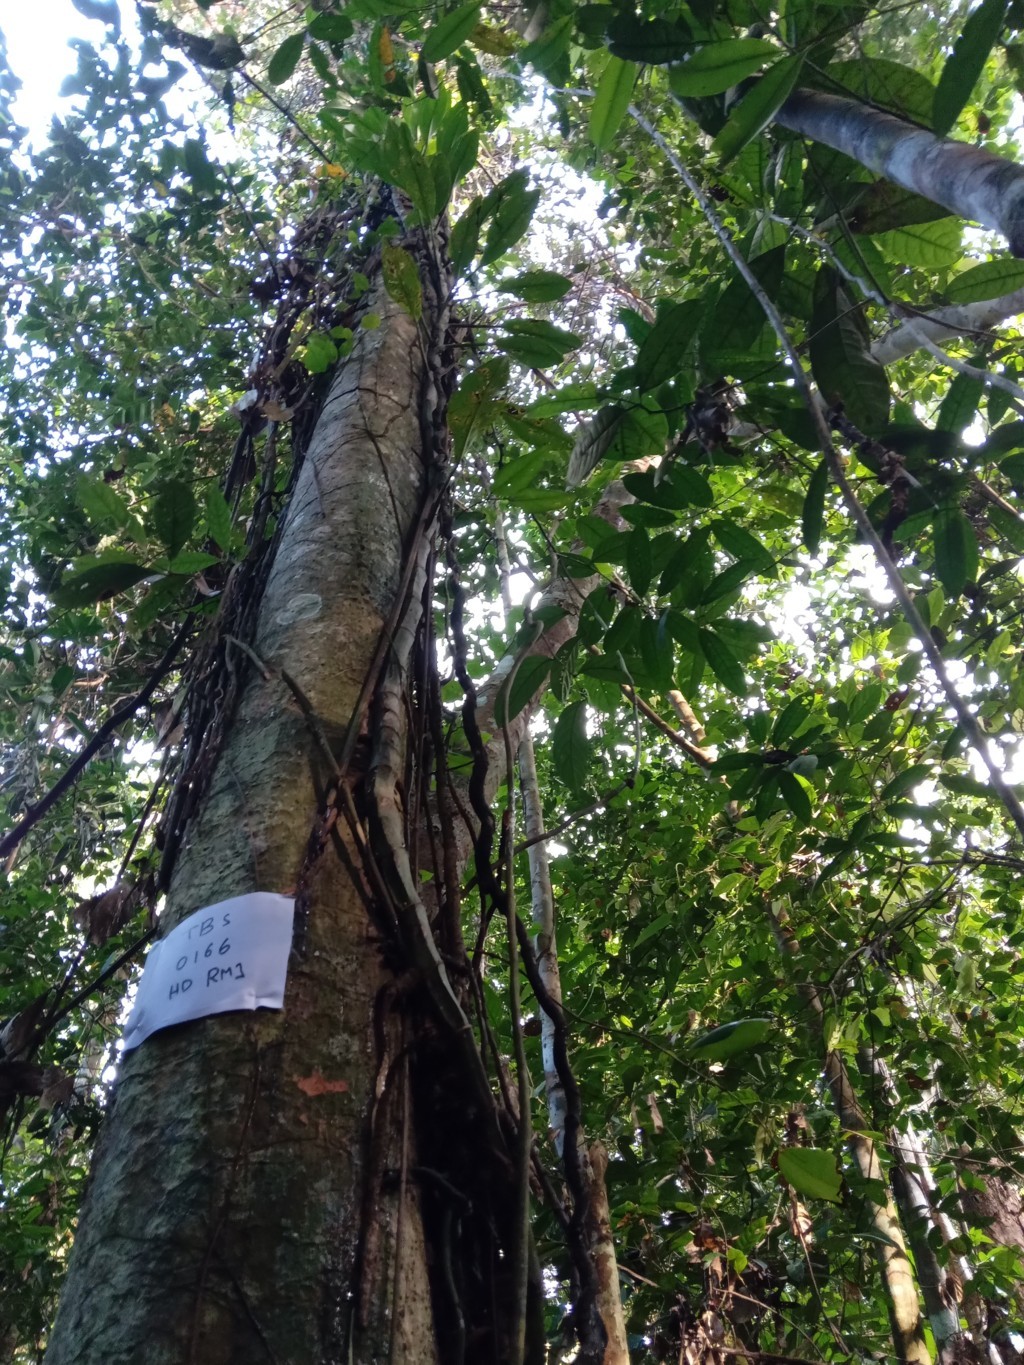 TBS
0166
HD RMJ